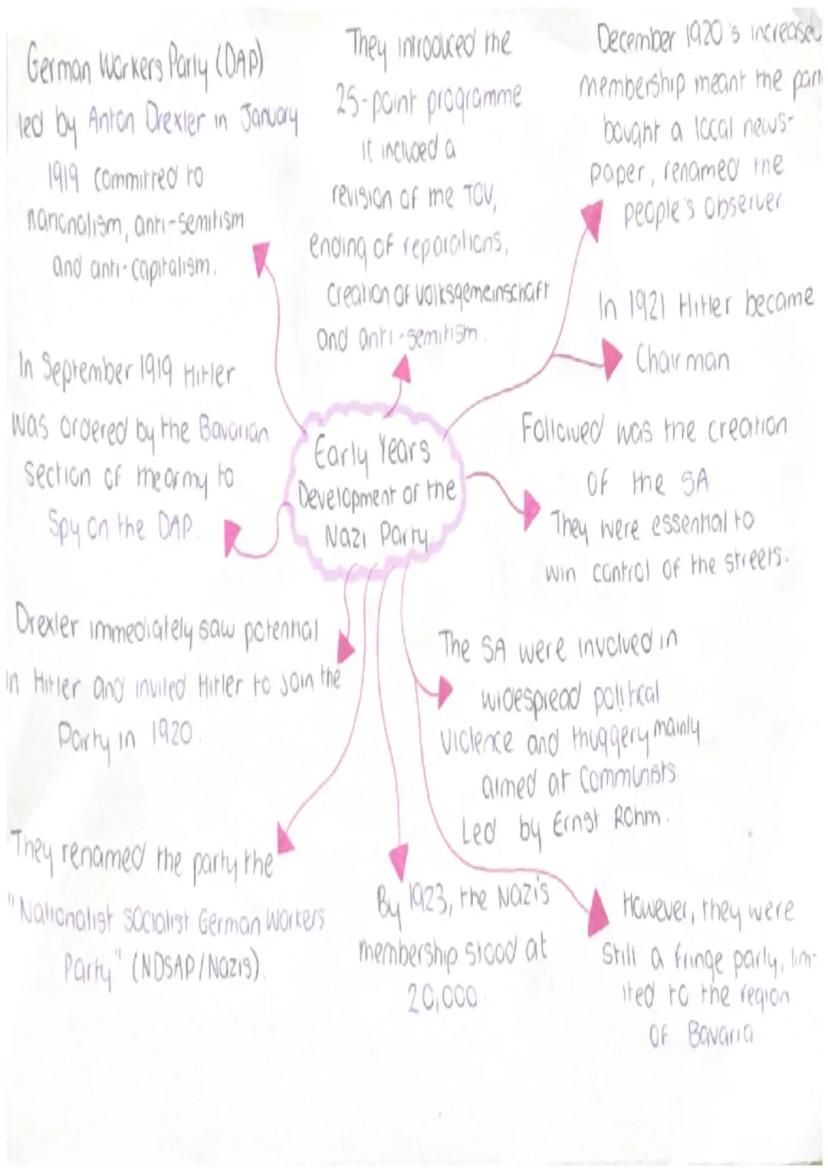 German Workers Party (DAP)
led by Anton Drexler in January
1919 committed to
nationalism, anti-semitism
and anti-capitalism.
They introduced the
25-point programme
it included a
revision of the TOV,
ending of reparations,
creation of volksgemeinschaft
and anti-semitism.
December 1920's increased
membership meant the part
bought a local news-
paper, renamed the
people's observer
In 1921 Hitler became
Chairman
In September 1919 Hitler
was ordered by the Bavarian
section of the army to
Spy on the DAP.
Early Years
Development of the
Nazi Party.
Followed was the creation
of the SA
They were essential to
win control of the streets.
Drexler immediately saw potential
in Hitler and invited Hitler to join the
Party in 1920.
The SA were involved in
widespread political
violence and thuggery mainly
aimed at Communists
Led by Ernst Röhm.
They renamed the party the
"Nationalist socialist German Workers
Party" (NDSAP/Nazis).
By 1923, the Nazi's
membership stood at
20,000
However, they were
still a fringe party, lim-
ited to the region
of Bavaria